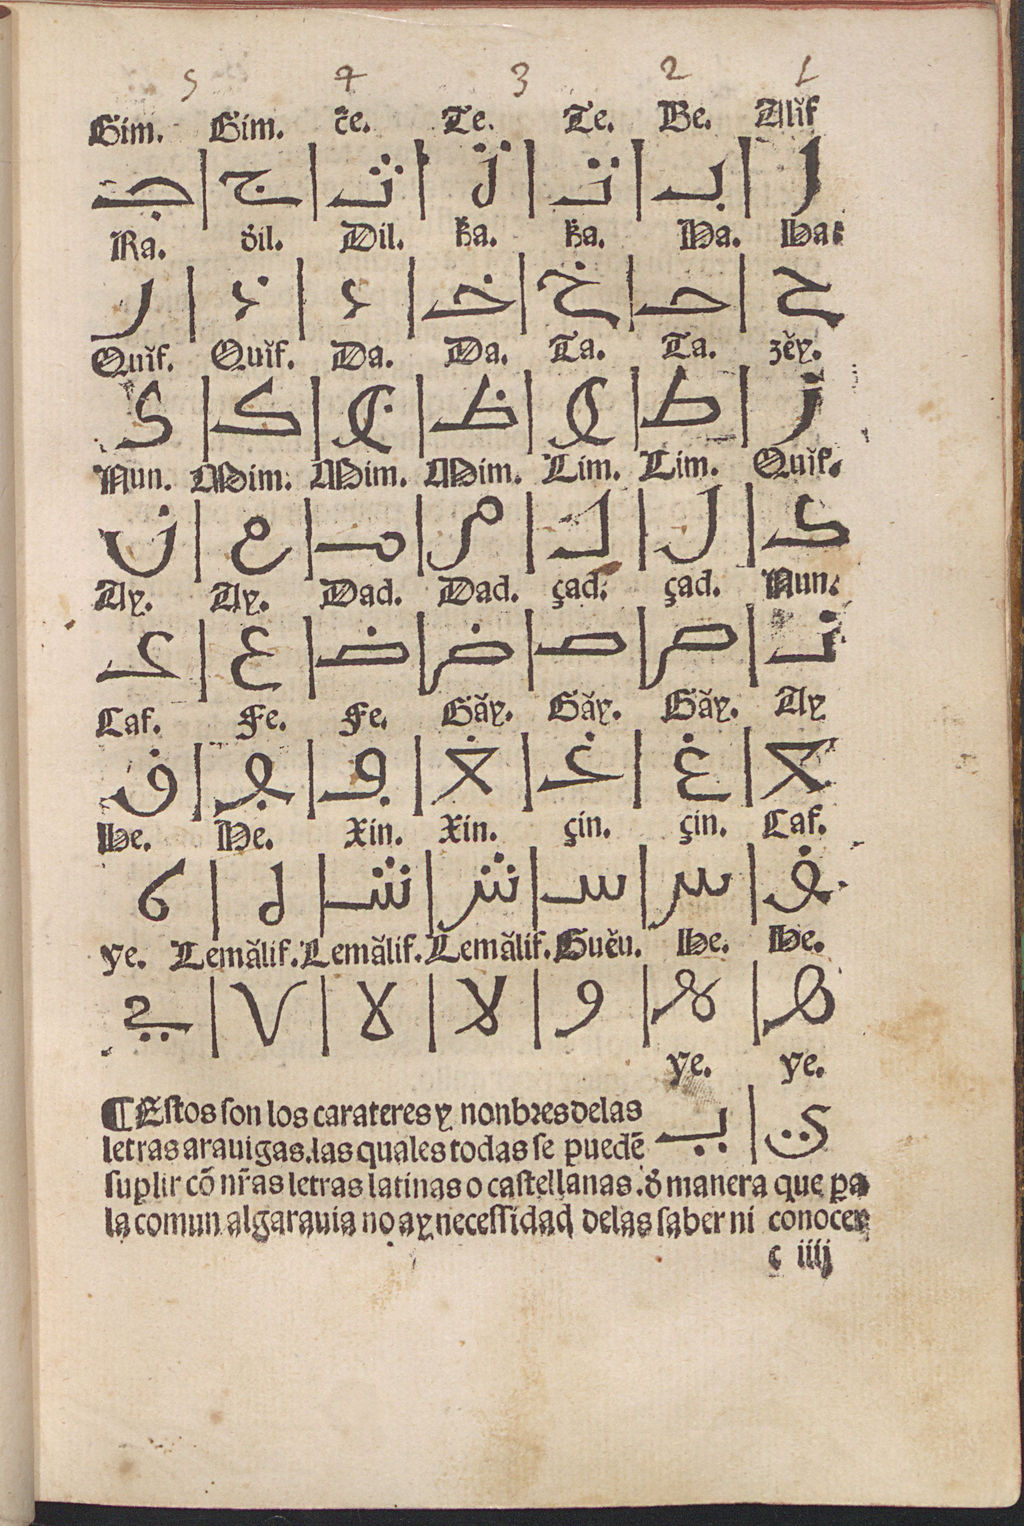 5 4 3 2 1
Gim. Gim. c̃e. Te. Te. Be. Alĭf
ا ﺑ ﺗ ث ﺛ ج ﺟ
Ra. ẟil. Dil. ꝁa. ꝁa. Ha. Ha.
ح ﺣ خ ﺧ د ذ ر
Quĭf. Quĭf. Da. Da. Ta. Ta. zĕy.
ز ﻃ ط ﻇ ظ ﻛ ك
Nun. Mim. Mim. Mim. Lim. Lim. Quĭf.
ﻛ ل ﻟ م ﻣ م ن
Ay. Ay. Dad. Dad. çad. çad. Nun.
ﻧ ص ﺻ ض ﺿ ع ﻋ
Caf. Fe. Fe. Găy. Găy. Găy. Ay
ﻌ غ ﻏ ﻐ ڢ ڢ ڧ
He. He. Xin. Xin. çin. çin. Caf.
ڧ س ﺳ ش ﺷ ه ه
ye. Lemălif. Lemălif. Lemălif. Guĕu. He. He.
ه ه و لا لا لا ﻳ
ye. ye.
ي ﻳ
¶ Estos son los carateres y nonbres delas
letras arauigas. las quales todas se puedē
suplir cō nr̃as letras latinas o castellanas. ẟ manera que pa
la comun algarauia no ay necessidad delas saber ni conocer
c iiij